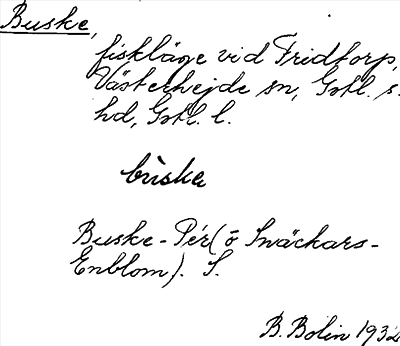 Buske,
fiskläge vid Fridtorp,
Västerhejde sn, Gotl. s.
hd, Gotl. l.
bùske
Buske-Pér (ō Snäckars-
Enblom). S.
B. Bolin 1932